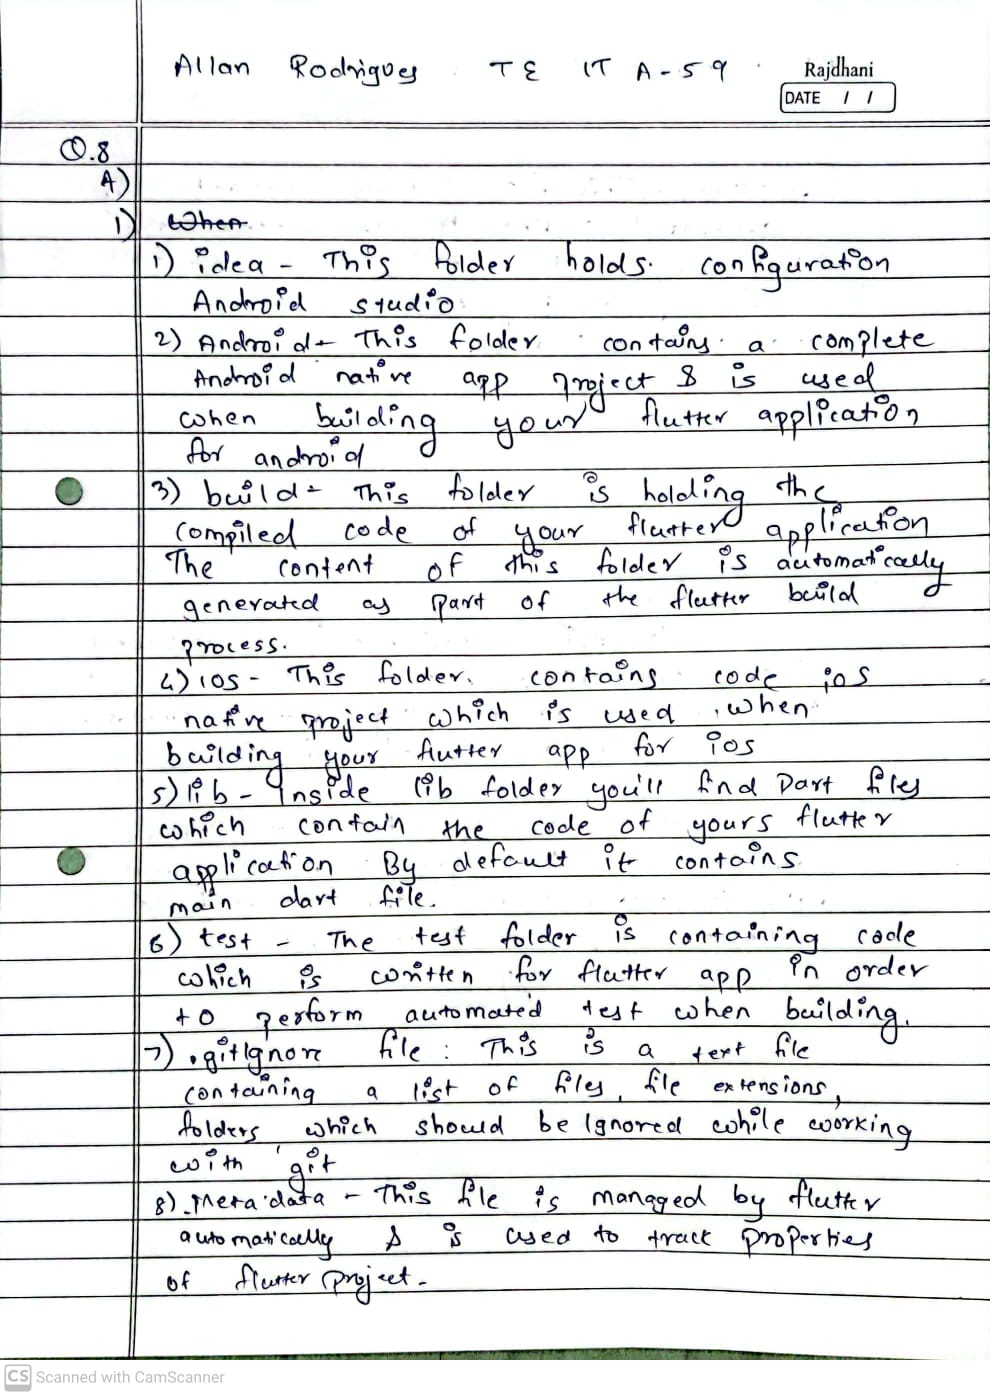 Allan Rodrigues TE IT A-59
Rajdhani
DATE / /
Q.8
A)
1) When
1) idea - This folder holds. configuration
Android studio
2) Android - This folder contains a complete
Android native app project & is used
when building your flutter application
for android
3) build - This folder is holding the
compiled code of your flutter application
The content of this folder is automatically
generated as part of the flutter build
process.
4) ios - This folder. contains code ios
native project which is used when
building your flutter app for ios
5) lib - Inside lib folder you'll find Dart files
which contain the code of yours flutter
application By default it contains
main dart file.
6) test - The test folder is containing code
which is written for flutter app in order
to perform automated test when building.
7) .gitIgnore file : This is a text file
containing a list of files, file extensions,
folders which should be Ignored while working
with git
8) .Metadata - This file is managed by flutter
automatically & is used to track properties
of flutter project.
CS Scanned with CamScanner